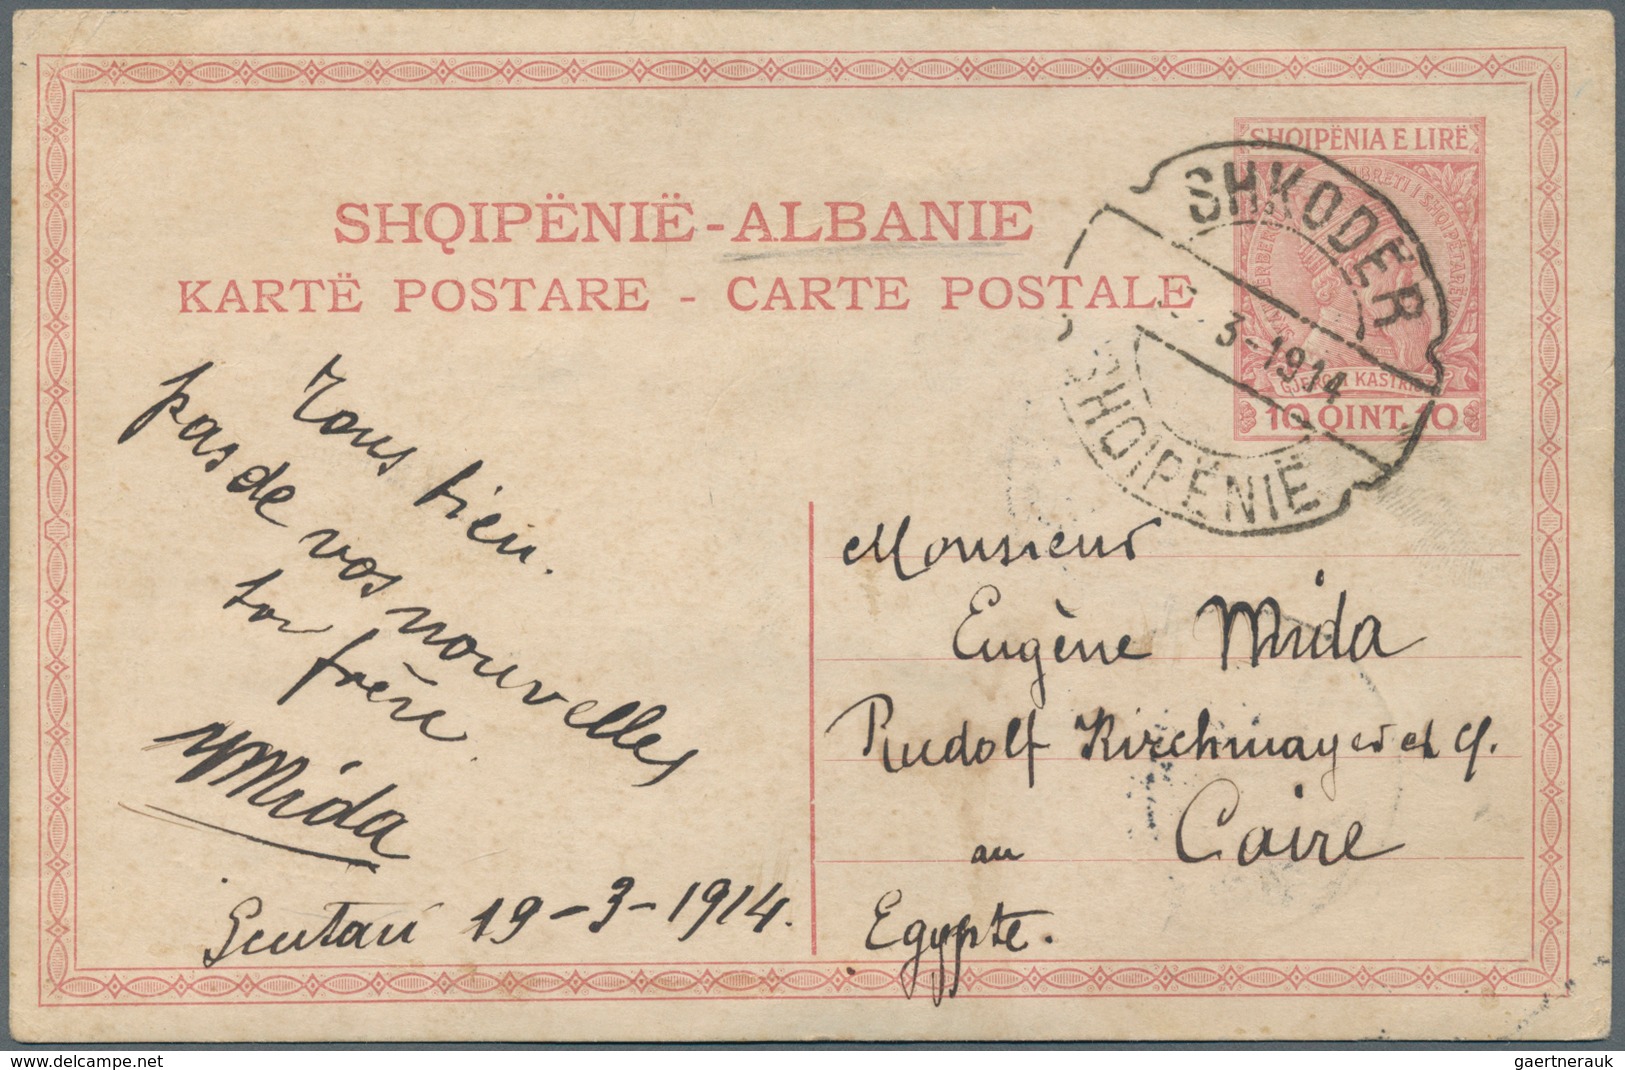 SHQIPËNIË-ALBANIE
KARTË POSTARE - CARTE POSTALE
SHQIPËNIA E LIRË
MBRETI I SHQIPËTARËVE
KASTRIOTI
10 QINT. 10
SHKODËR
3-1914
SHQIPËNIË
Tous bien.
pas de vos nouvelles
ton frère
Mida
Scutari 19-3-1914.
Monsieur
Eugène Mida
Rudolf Kirchmayer et
au Caire
Egypte.
gaertnerauk
delcampe.net